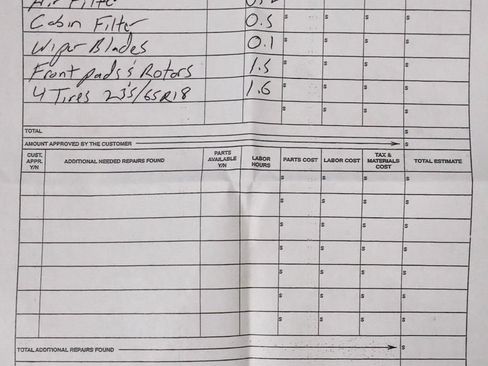 Air Filter 0.2 $ $ $
Cabin Filter 0.5 $ $ $ $
Wiper Blades 0.1 $ $ $ $
Front pads & Rotors 1.5 $ $ $ $
4 Tires 235/65R18 1.6 $ $ $ $
$ $ $ $
TOTAL $
AMOUNT APPROVED BY THE CUSTOMER $
CUST. APPR. Y/N ADDITIONAL NEEDED REPAIRS FOUND PARTS AVAILABLE Y/N LABOR HOURS PARTS COST LABOR COST TAX & MATERIALS COST TOTAL ESTIMATE
$ $ $ $
$ $ $ $
$ $ $ $
$ $ $ $
$ $ $ $
$ $ $ $
$ $ $ $
TOTAL ADDITIONAL REPAIRS FOUND $